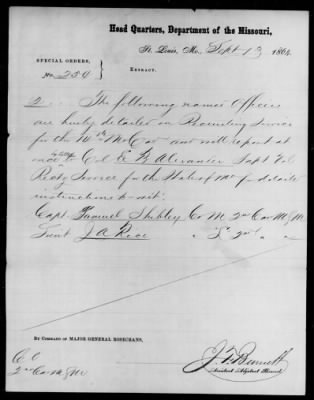 Head Quarters, Department of the Missouri,
St. Louis, Mo., Sept 13 1864
SPECIAL ORDERS,
No. 250
EXTRACT.
2 The following names Officers
are hereby detailed on Recruiting Service
for the 14th Mo Cav and will report at
once to Col E B Alexander Supt Vol
Rectg Service for the State of Mo for detailed
instructions to wit:
Capt Samuel Co M 2d Cav M S M
Lieut J A Rice " 2nd " "
BY COMMAND OF MAJOR GENERAL ROSECRANS,
C. O
2d Cav M S M
J. F. Bennett
Assistant Adjutant General